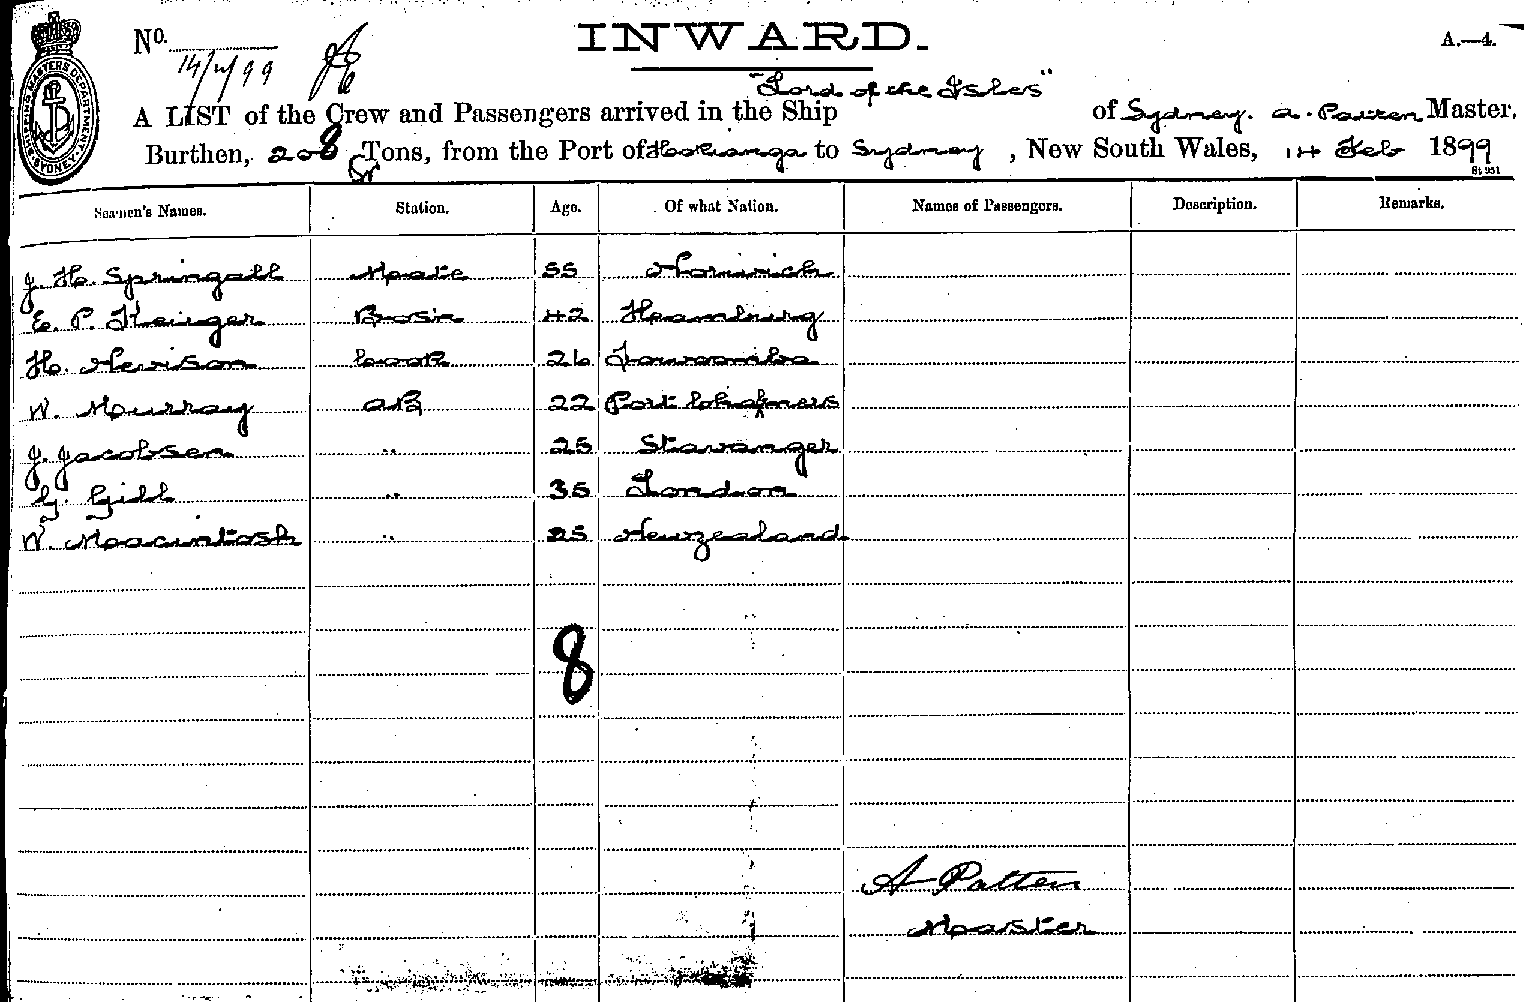 No.
14/2/99
INWARD.
A.—4.
"Lord of the Isles"
A LIST of the Crew and Passengers arrived in the Ship of Sydney. A. Patten Master,
Burthen, 208 Tons, from the Port of Hokianga to Sydney, New South Wales, 14 Feb 1899
SHIPPING MASTERS DEPARTMENT SYDNEY
Seamen's Names. Station. Age. Of what Nation. Names of Passengers. Description. Remarks.
J. H. Springall Mate 55 Norwich
E. P. Kleiger Bosn 42 Hamburg
H. Nevison Cook 26 Toowoomba
W. Murray AB 22 Port Chalmers
J. Jacobsen " 25 Stavanger
G. Gill " 35 London
W. Macintosh " 25 Newzealand
8
A Patten
Master